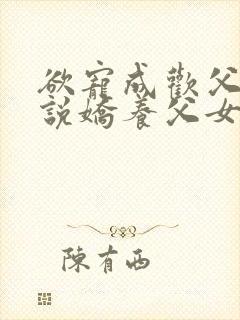 欲寵成歡父
說嬌養父女
陳有西